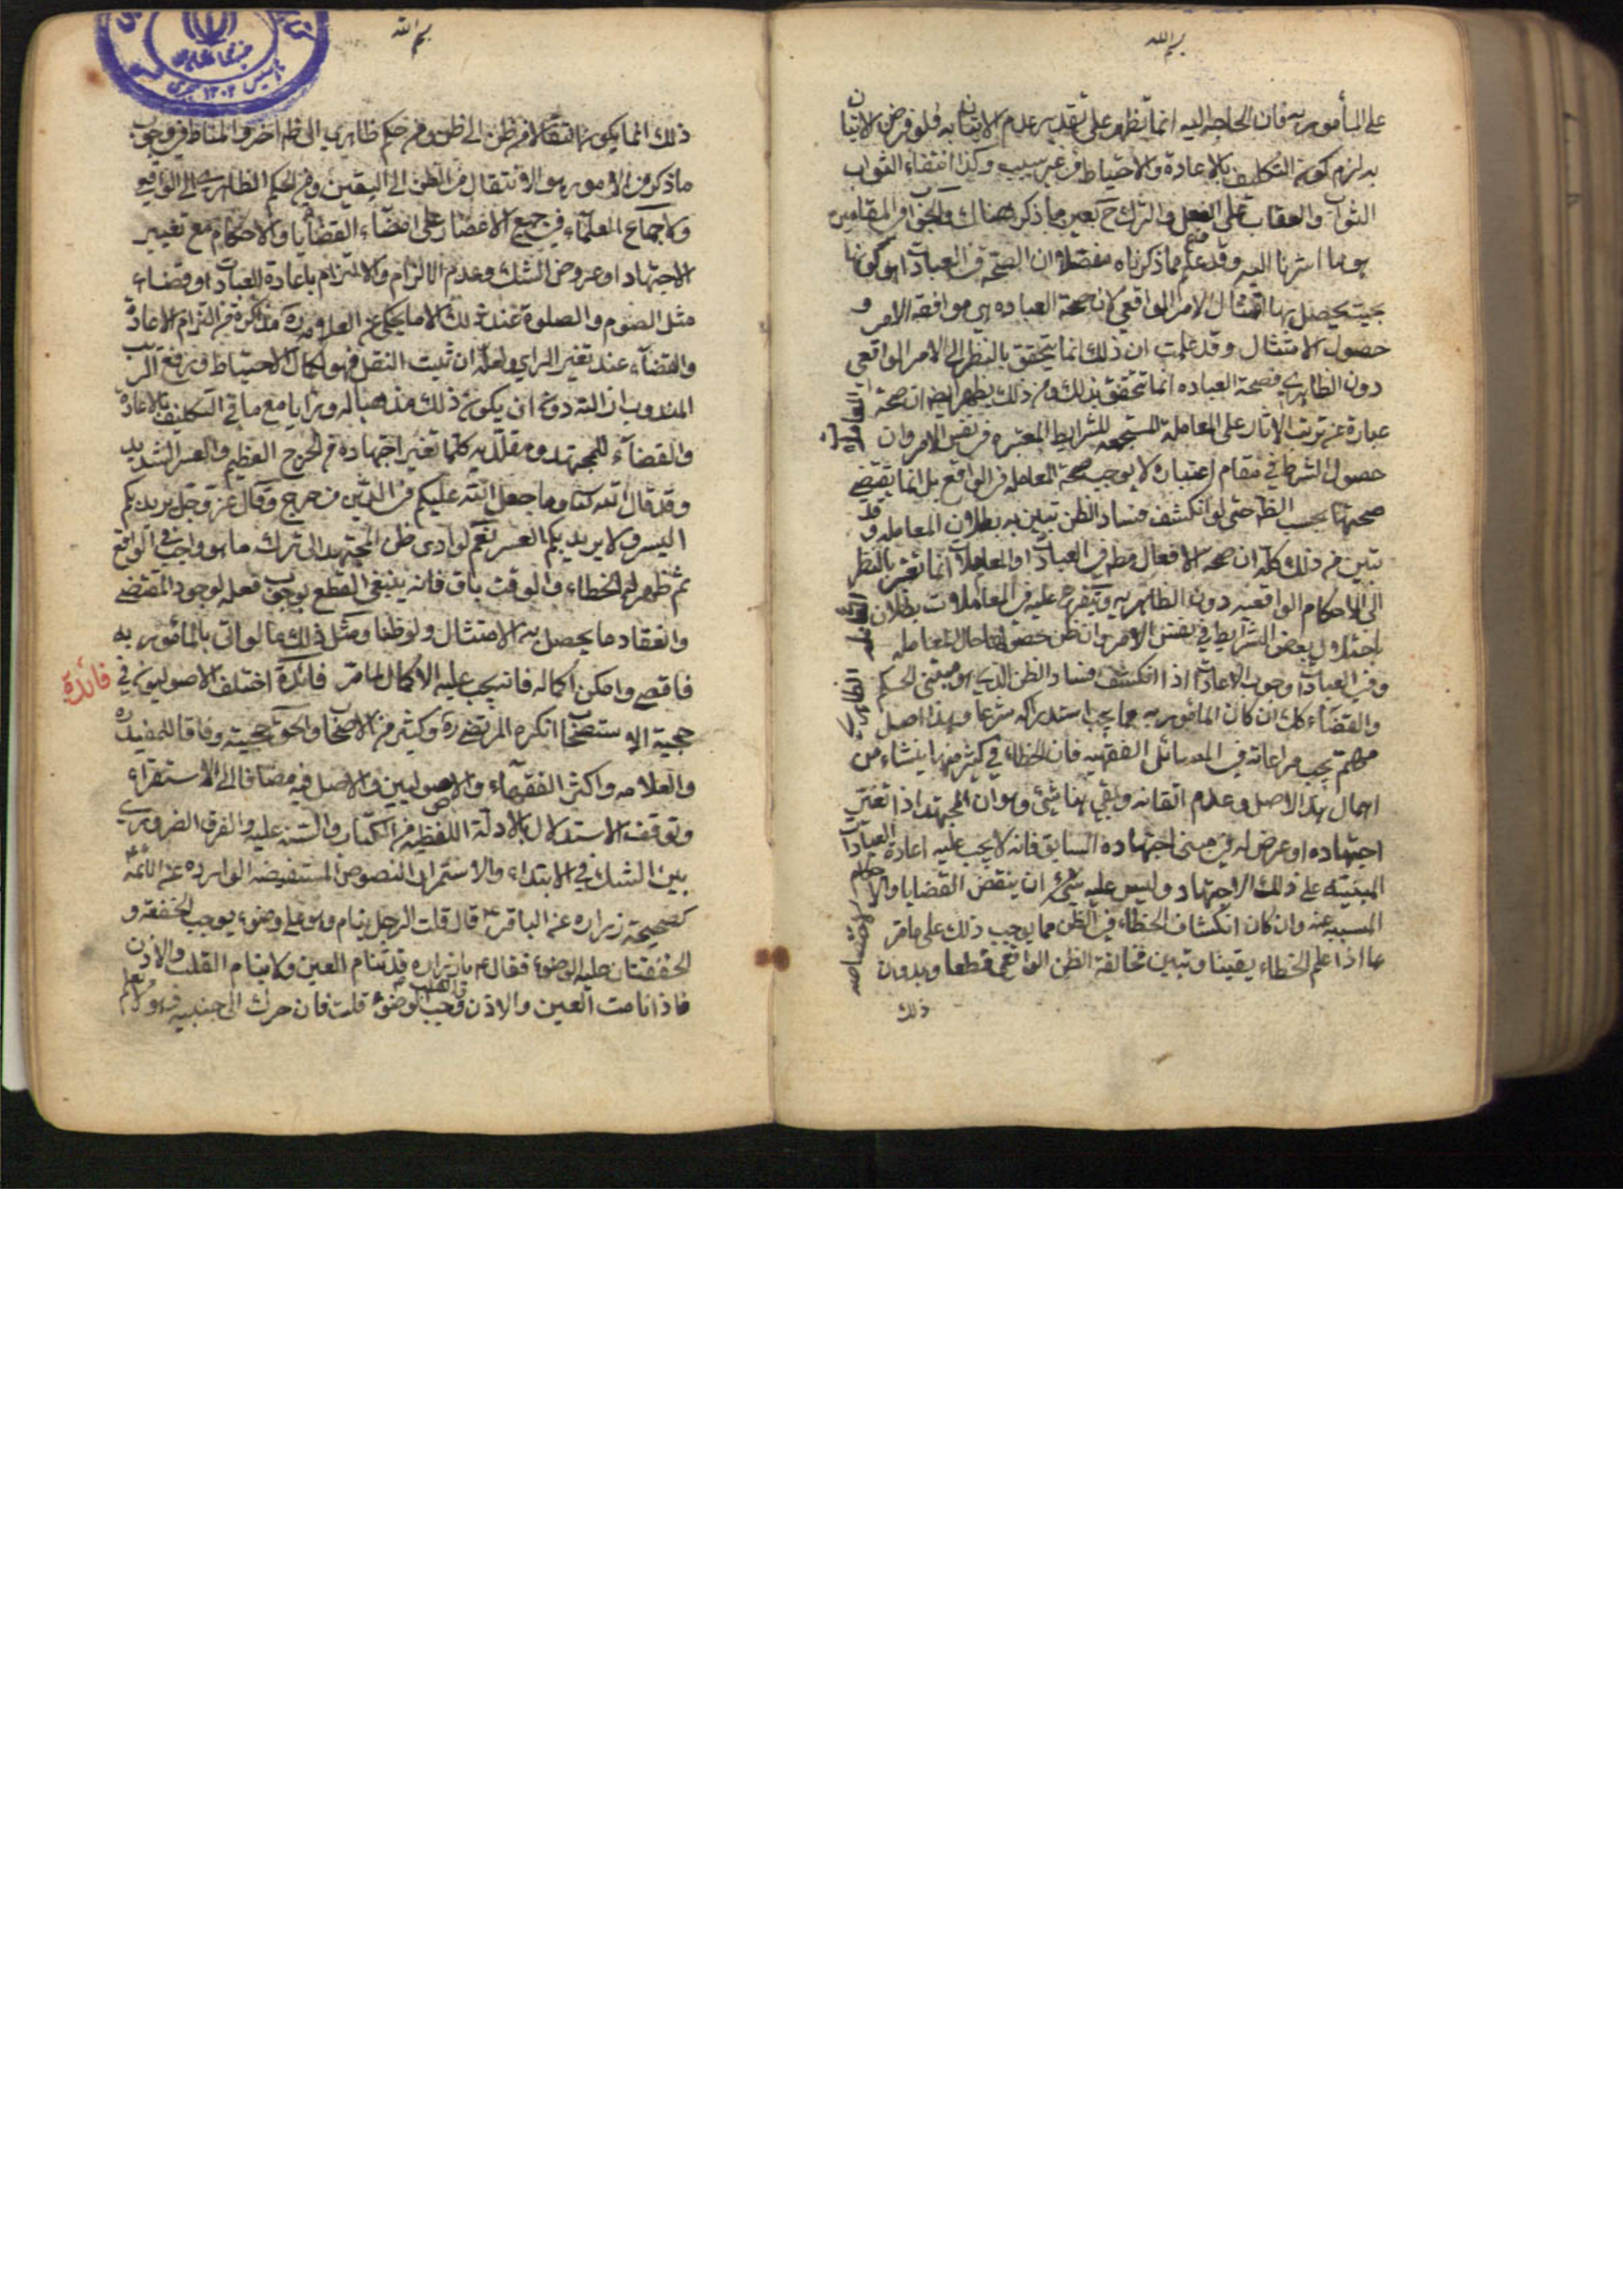 بسم الله
على المأمور به فان الحاجة اليه انما تظهر على تقدير عدم الاتيان به فلو فرض الاتيان
به لزم كون التكليف بالاعادة والاحتياط من غير سبب وكذا انتفاء الثواب
الثواب والعقاب على الفعل والترك ح بعين ما ذكر هناك والجواب في المقامين
هو ما اشرنا اليه وقد علم مما ذكرناه مفصلا ان الصحة في العبادات هو كونها
بحيث يحصل بها امتثال الامر الواقعي لان صحة العباده هي موافقة الامر و
حصول الامتثال وقد علمت ان ذلك انما يتحقق بالنظر الى الامر الواقعي
دون الظاهري فصحة العباده انما تتحقق بذلك ومن ذلك يظهر ايضا ان صحة المعاملات
عبارة عن ترتب الاثار على المعاملة المستجمعه للشرايط المعتبره في نفس الامر وان
حصول الشرط في مقام اعتباره لا يوجب صحة المعامله في الواقع بل انما يقتضي
صحتها بحسب الظ حتى لو انكشف فساد الظن تبين به بطلان المعامله و قد
تبين من ذلك كله ان صحه الافعال مط في العبادات او المعاملات انما تعتبر بالنظر
الى الاحكام الواقعيه دون الظاهريه ويتفرع عليه في المعاملات بطلان
باختلال بعض الشرايط في نفس الامر وان ظن حصولها حال المعامله
وفي العبادات وجوب الاعادة اذا انكشف فساد الظن الذي هو مبنى الحكم الظاهري
والقضاء كك ان كان المأمور به مما يجب استدراكه شرعا وهذا اصل
مهم يجب مراعاته في المسائل الفقهيه فان الخطاء في كثير منها ينشاء من
اهمال هذا الاصل وعدم اتقانه وبقي هنا شئ وهو ان المجتهد اذا تغير
اجتهاده او عرض له في مبنى اجتهاده السابق فانه لا يجب عليه اعادة العبادات
المبنيته على ذلك الاجتهاد وليس عليه شئ ان ينقض القضايا والاحكام
المسببه عنه وان كان انكشاف الخطاء في الظن مما يوجب ذلك على ما مر لاختصاصه
بما اذا علم الخطاء يقينا وتبين مخالفة الظن الواقعي قطعا وبدون
ذلك
بسم الله
ذلك انما يكون انتقالا من ظن الى ظن ومن حكم ظاهري الى ظاهري اخر والمناط في وجوب
ما ذكر من الامور هو الانتقال من الظن الى اليقين ومن الحكم الظاهري الى الواقعي
ولاجماع العلماء في جميع الاعصار على امضاء القضايا والاحكام مع تغيير
الاجتهاد او عروض الشك وعدم الالزام والالتزام باعادة العبادات او قضاء
مثل الصوم والصلوة عند ذلك الا ما يحكى عن العلامه ره من التزام الاعادة
والقضاء عند تغير الراي ولعله ان ثبت النقل فهو لكمال الاحتياط ورفع الريب
المندوب اليه دون ان يكون ذلك مذهبا له ورايا مع ما في التكليف بالاعاده
والقضاء للمجتهد ومقلديه كلما تغير اجتهاده من الحرج العظيم والعسر الشديد
وقد قال الله تعالى وما جعل الله عليكم في الدين من حرج وقال عز وجل يريد بكم
اليسر ولا يريد بكم العسر نعم لو ادى ظن المجتهد الى ترك ما هو واجب في الواقع
ثم ظهر له الخطاء والوقت باق فانه ينبغي القطع بوجوب فعله لوجود المقتضي
وانعقاد ما يحصل به الامتثال ولو ظنا ومثل ذلك ما لو اتى بالمأمور به
ناقصا وامكن اكماله فانه يجب عليه الاكمال لما مر فائدة اختلف الاصوليون في
فائدة
حجية الاستصحاب انكره المرتضى ره وكثير من الاصحاب والحق حجيته وفاقا للمفيد ره
والعلامه واكثر الفقهاء والاصوليين والاصل فيه مضافا الى الاستقراء
وتوقف الاستدلال بالادلة اللفظيه من الكتاب والسنه عليه والفرق الضروري
بين الشك في الابتداء والاستمرار النصوص المستفيضه الوارده عن الائمة ع
كصحيحة زراره عن الباقر ع قال قلت الرجل ينام وهو على وضوء يوجب الخفقه و
الخفقتان عليه الوضوء فقال ع يا زراره قد تنام العين ولا ينام القلب والاذن
فاذا نامت العين والاذن والقلب وجب الوضوء قلت فان حرك الى جنبه شئ ولم يعلم